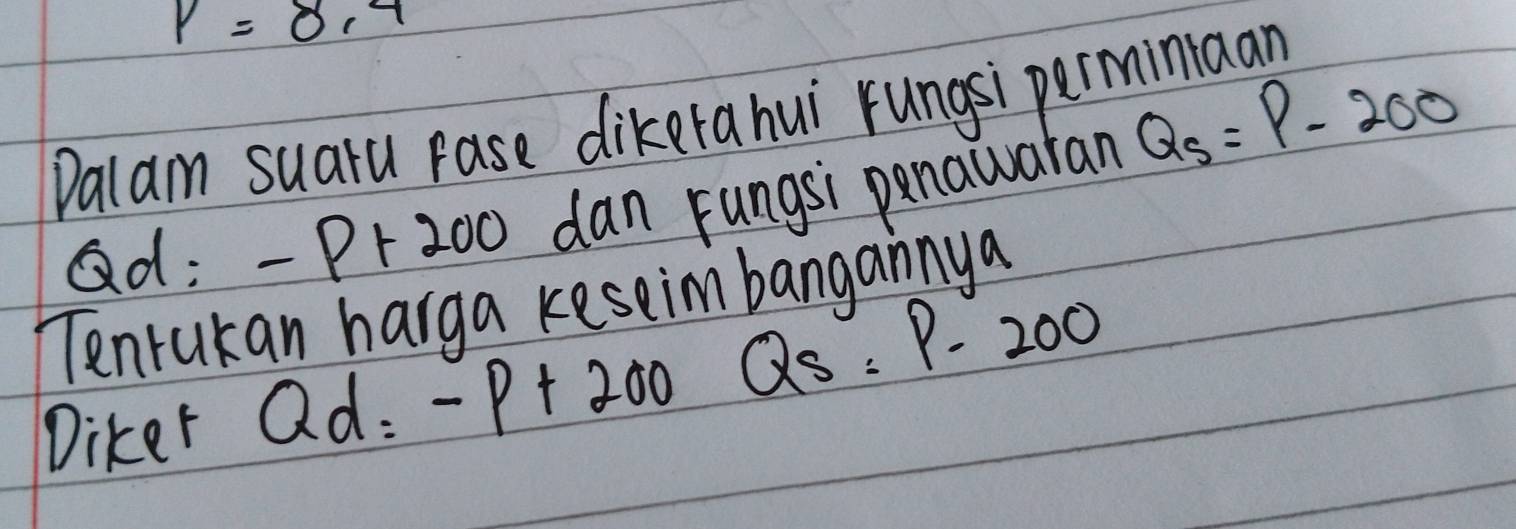 P = 8,4
Dalam suatu fase diketahui fungsi permintaan
Qd = -P+200 dan fungsi penawaran Qs = P - 200
Tentukan harga keseimbangannya
Diket Qd = -P + 200 Qs = P - 200